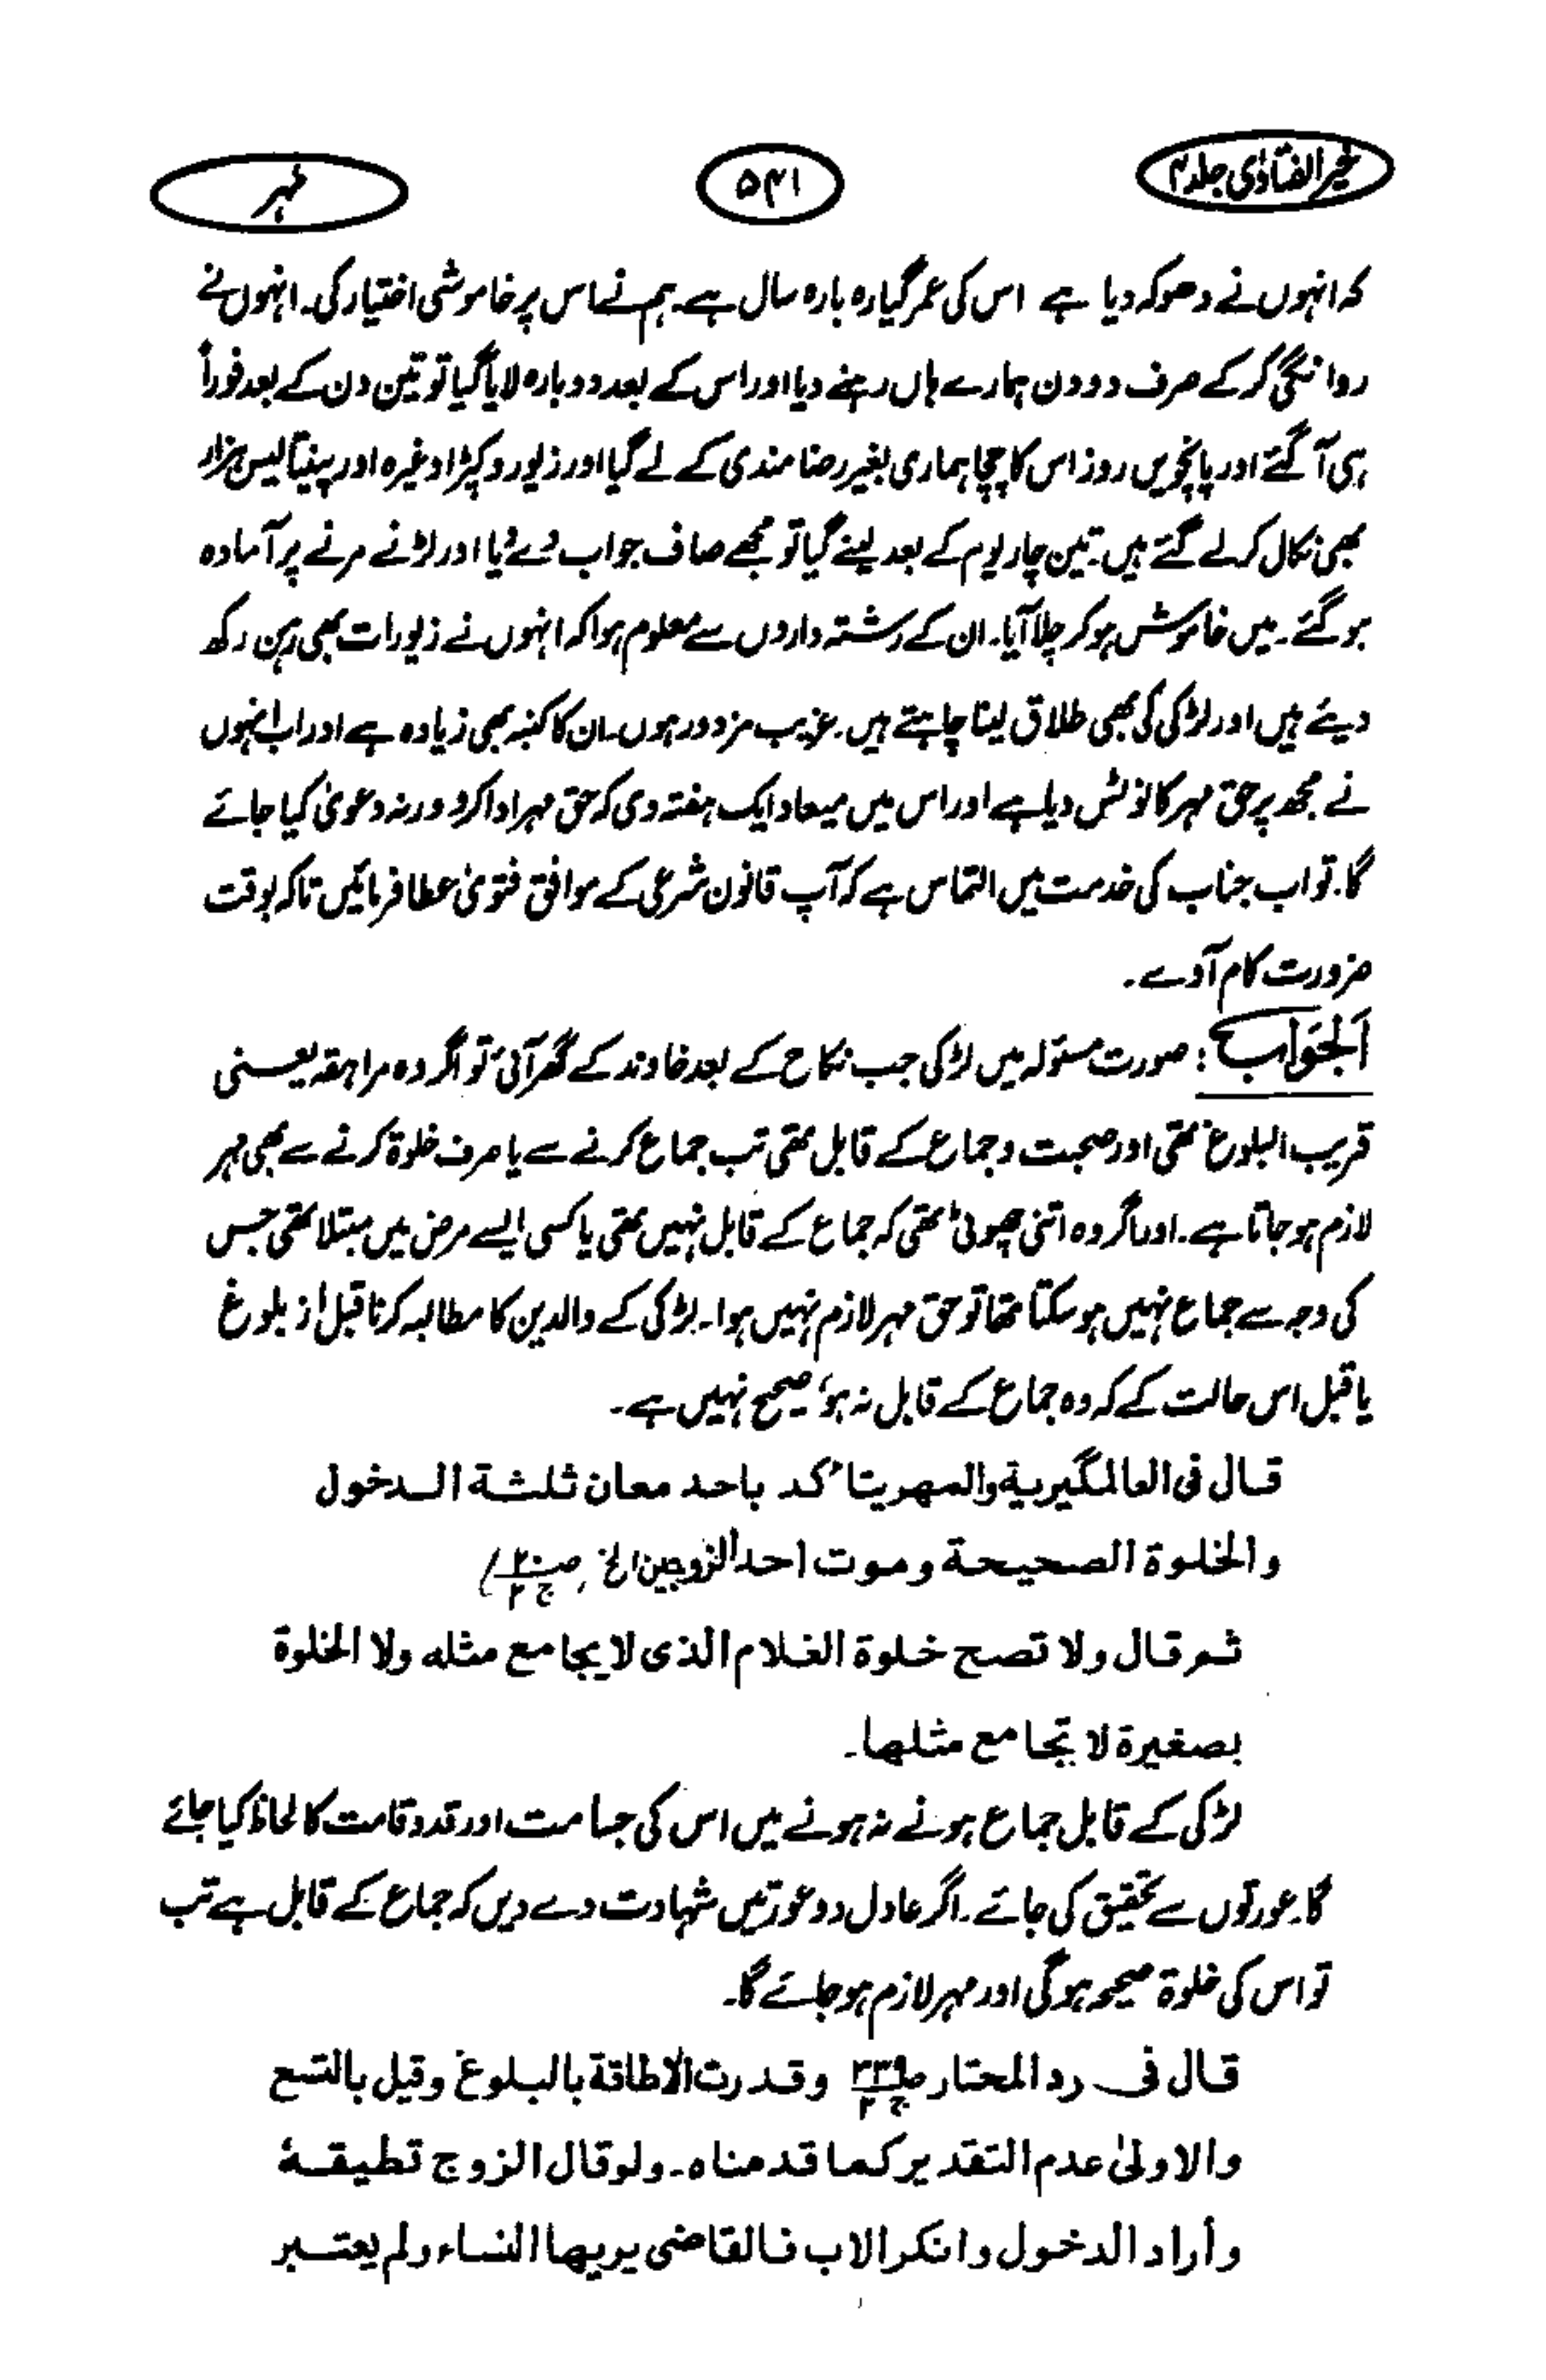 خیر الفتاوٰی جلد ۴
۵۴۱
مہر
کہ انہوں نے دھوکہ دیا ہے اس کی عمر گیارہ بارہ سال ہے۔ ہم نے اس پر خاموشی اختیار کی۔ انہوں نے
روانگی کر کے صرف دو دن ہمارے ہاں رہنے دیا اور اس کے بعد دوبارہ لایا گیا تو تین دن کے بعد فوراً
ہی آ گئے اور پانچویں روز اس کا چچا ہماری بغیر رضامندی کے لے گیا اور زیور و کپڑا وغیرہ اور پینتالیس ہزار
بھی نکال کر لے گئے ہیں۔ تین چار یوم کے بعد لینے گیا تو مجھے صاف جواب دے دیا اور لڑنے مرنے پر آمادہ
ہو گئے۔ میں خاموش ہو کر چلا آیا۔ ان کے رشتہ داروں سے معلوم ہوا کہ انہوں نے زیورات بھی رہن رکھ
دیئے ہیں اور لڑکی کی بھی طلاق لینا چاہتے ہیں۔ غریب مزدور ہوں۔ ان کا کنبہ بھی زیادہ ہے اور اب انہوں
نے مجھ پر حق مہر کا نوٹس دیا ہے اور اس میں میعاد ایک ہفتہ دی کہ حق مہر ادا کرو ورنہ دعویٰ کیا جائے
گا۔ تو اب جناب کی خدمت میں التماس ہے کہ آپ قانون شرعی کے موافق فتویٰ عطا فرمائیں تاکہ بوقت
ضرورت کام آوے۔
اَلجَوَاب: صورت مسئولہ میں لڑکی جب نکاح کے بعد خاوند کے گھر آئی تو اگر وہ مراہقہ یعنی
قریب البلوغ تھی اور صحبت و جماع کے قابل تھی تب جماع کرنے سے یا صرف خلوۃ کرنے سے بھی مہر
لازم ہو جاتا ہے۔ اور اگر وہ اتنی چھوٹی تھی کہ جماع کے قابل نہیں تھی یا کسی ایسے مرض میں مبتلا تھی جس
کی وجہ سے جماع نہیں ہو سکتا تھا تو حق مہر لازم نہیں ہوا۔ لڑکی کے والدین کا مطالبہ کرنا قبل از بلوغ
یا قبل اس حالت کے کہ وہ جماع کے قابل نہ ہو، صحیح نہیں ہے۔
قال فی العالمگیریة والمهر یتاکد باحد معان ثلثة الدخول
والخلوة الصحیحة وموت احد الزوجین الخ
ثم قال ولا تصح خلوة الغلام الذی لا یجامع مثله ولا الخلوة
بصغیرة لا تجامع مثلها۔
لڑکی کے قابل جماع ہونے نہ ہونے میں اس کی جسامت اور قد و قامت کا لحاظ کیا جائے
گا۔ عورتوں سے تحقیق کی جائے۔ اگر عادل دو عورتیں شہادت دے دیں کہ جماع کے قابل ہے تب
تو اس کی خلوۃ صحیحہ ہو گی اور مہر لازم ہو جائے گا۔
قال فی رد المحتار وقدرت الاطاقة بالبلوغ وقیل بالتسع
والاولیٰ عدم التقدیر کما قدمناه۔ ولو قال الزوج تطیقهٔ
وأراد الدخول وانکر الاب فالقاضی یریها النساء ولم یعتبر